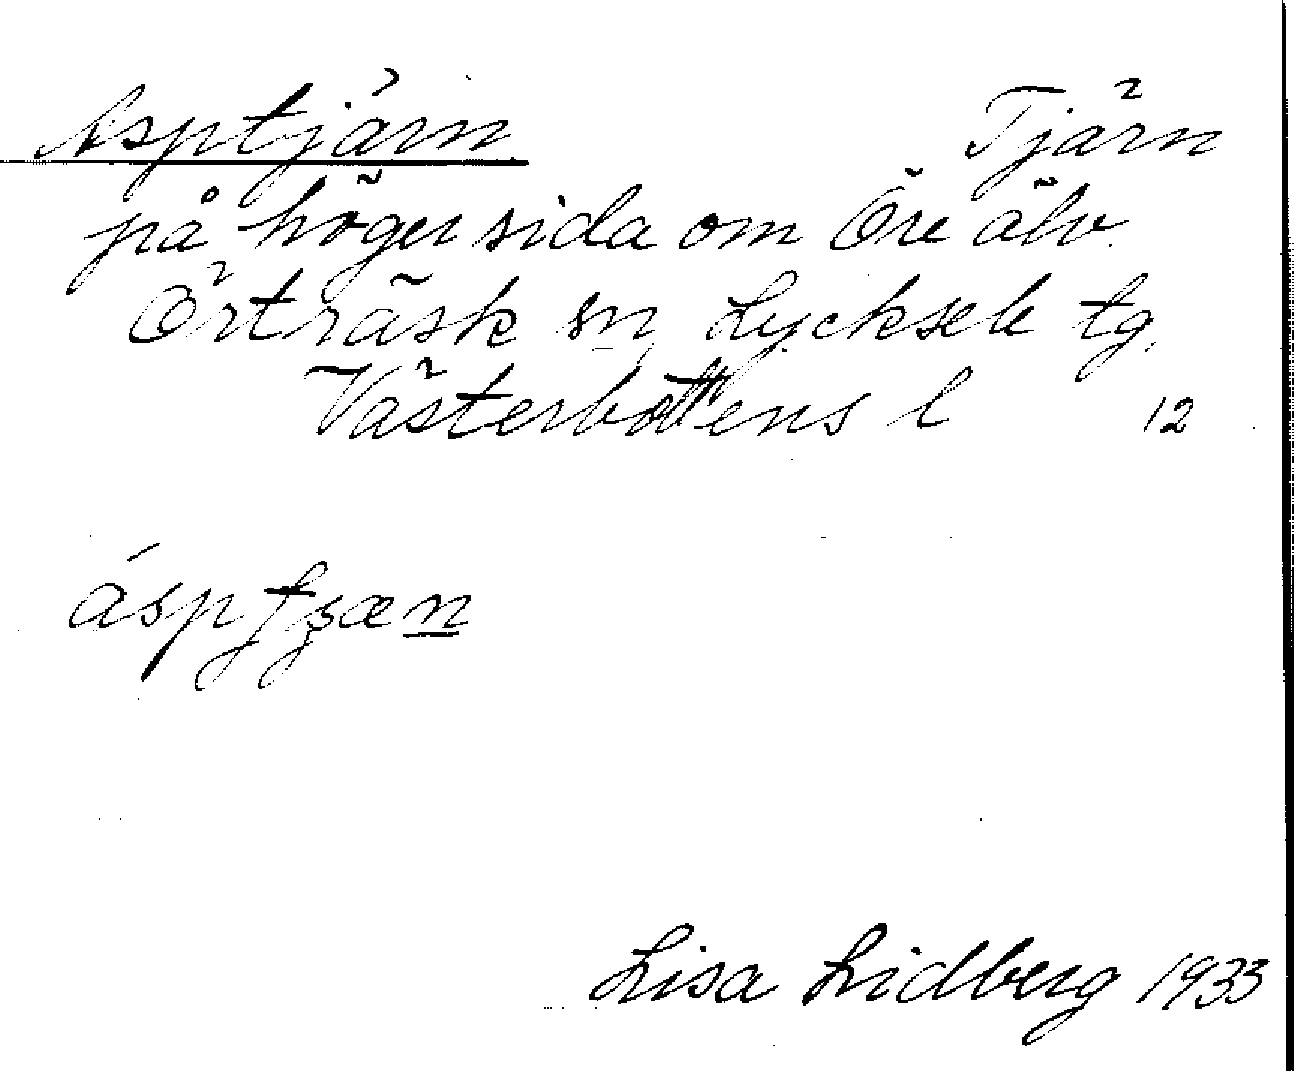 Asptjärn Tjärn
på höger sida om Öre älv.
Örträsk sn Lycksele tg.
Västerbottens l 12
ásptȿæn
Lisa Lidberg 1933